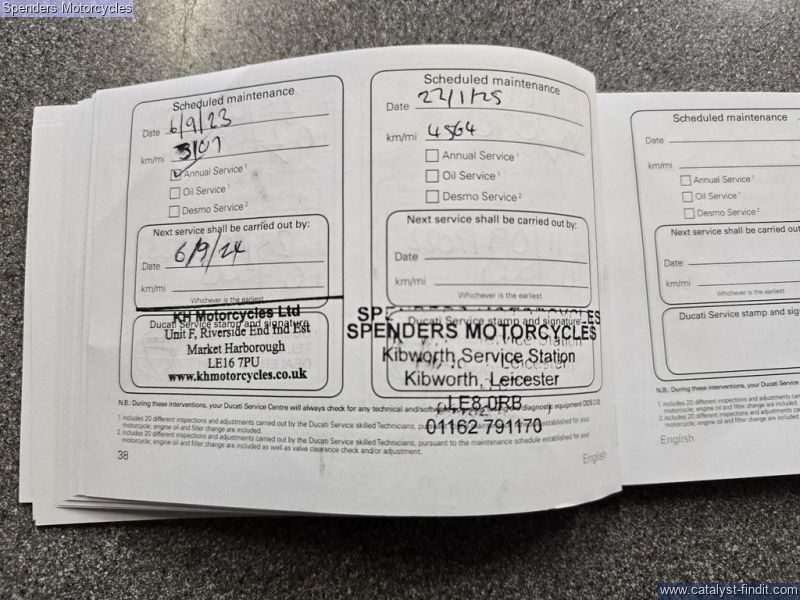 Spenders Motorcycles
Scheduled maintenance
Date 6/9/23
km/mi 3107
Annual Service¹
Oil Service¹
Desmo Service²
Next service shall be carried out by:
Date 6/9/24
km/mi
Whichever is the earliest
Ducati Service stamp and signature
KH Motorcycles Ltd
Unit F, Riverside End Ind Est
Market Harborough
LE16 7PU
www.khmotorcycles.co.uk
Scheduled maintenance
Date 22/1/25
km/mi 4564
Annual Service¹
Oil Service¹
Desmo Service²
Next service shall be carried out by:
Date
km/mi
Whichever is the earliest
Ducati Service stamp and signature
SPENDERS MOTORCYCLES
Kibworth Service Station
Kibworth, Leicester
LE8 0RB
01162 791170
N.B.: During these interventions, your Ducati Service Centre will always check for any technical and/or diagnostic equipment DDS 2.0)
1. includes 20 different inspections and adjustments carried out by the Ducati Service skilled Technicians, established for your
motorcycle; engine oil and filter change are included.
2. includes 20 different inspections and adjustments carried out by the Ducati Service skilled Technicians, pursuant to the maintenance schedule established for your
motorcycle; engine oil and filter change are included as well as valve clearance check and/or adjustment.
38
English
Scheduled maintenance
Date
km/mi
Annual Service¹
Oil Service¹
Desmo Service²
Next service shall be carried out
Date
km/mi
Whichever is the earliest
Ducati Service stamp and signa
N.B.: During these interventions, your Ducati Service
1. includes 20 different inspections and adjustments ca
motorcycle; engine oil and filter change are included.
2. includes 20 different inspections and adjustments car
motorcycle; engine oil and filter change are included a
English
www.catalyst-findit.com